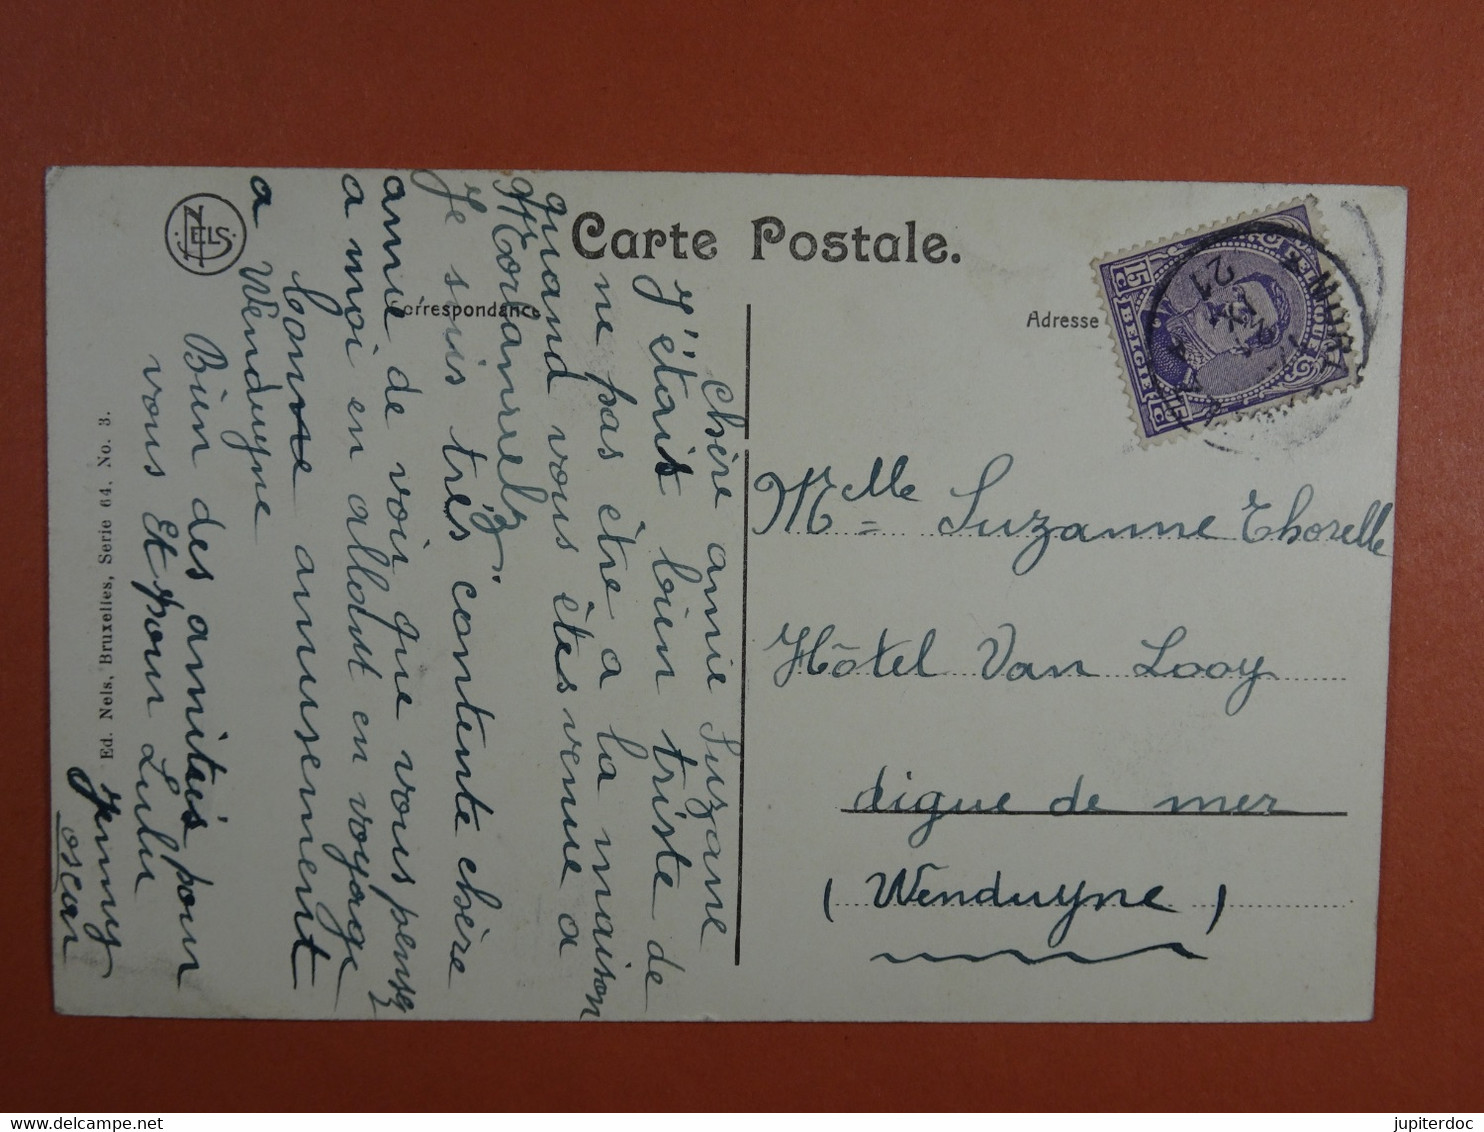 Carte Postale.
Correspondance
Adresse
NELS
Chère amie Suzanne
J'étais bien triste de
ne pas être a la maison
quand vous êtes venue a
Morlanwelz.
Je suis très contente chère
amie de voir que vous pensez
a moi en allant en voyage
bonne amusement
a Wenduyne
Bien des amitiés pour
vous Et pour Lulu
Jenny
oscar
Ed. Nels, Bruxelles, Serie 64, No. 3.
BELGIQUE
BELGIE
15 c
15 c
21
Mlle Suzanne Thorelle
Hôtel Van Looy
digue de mer
(Wenduyne)
jupiterdoc